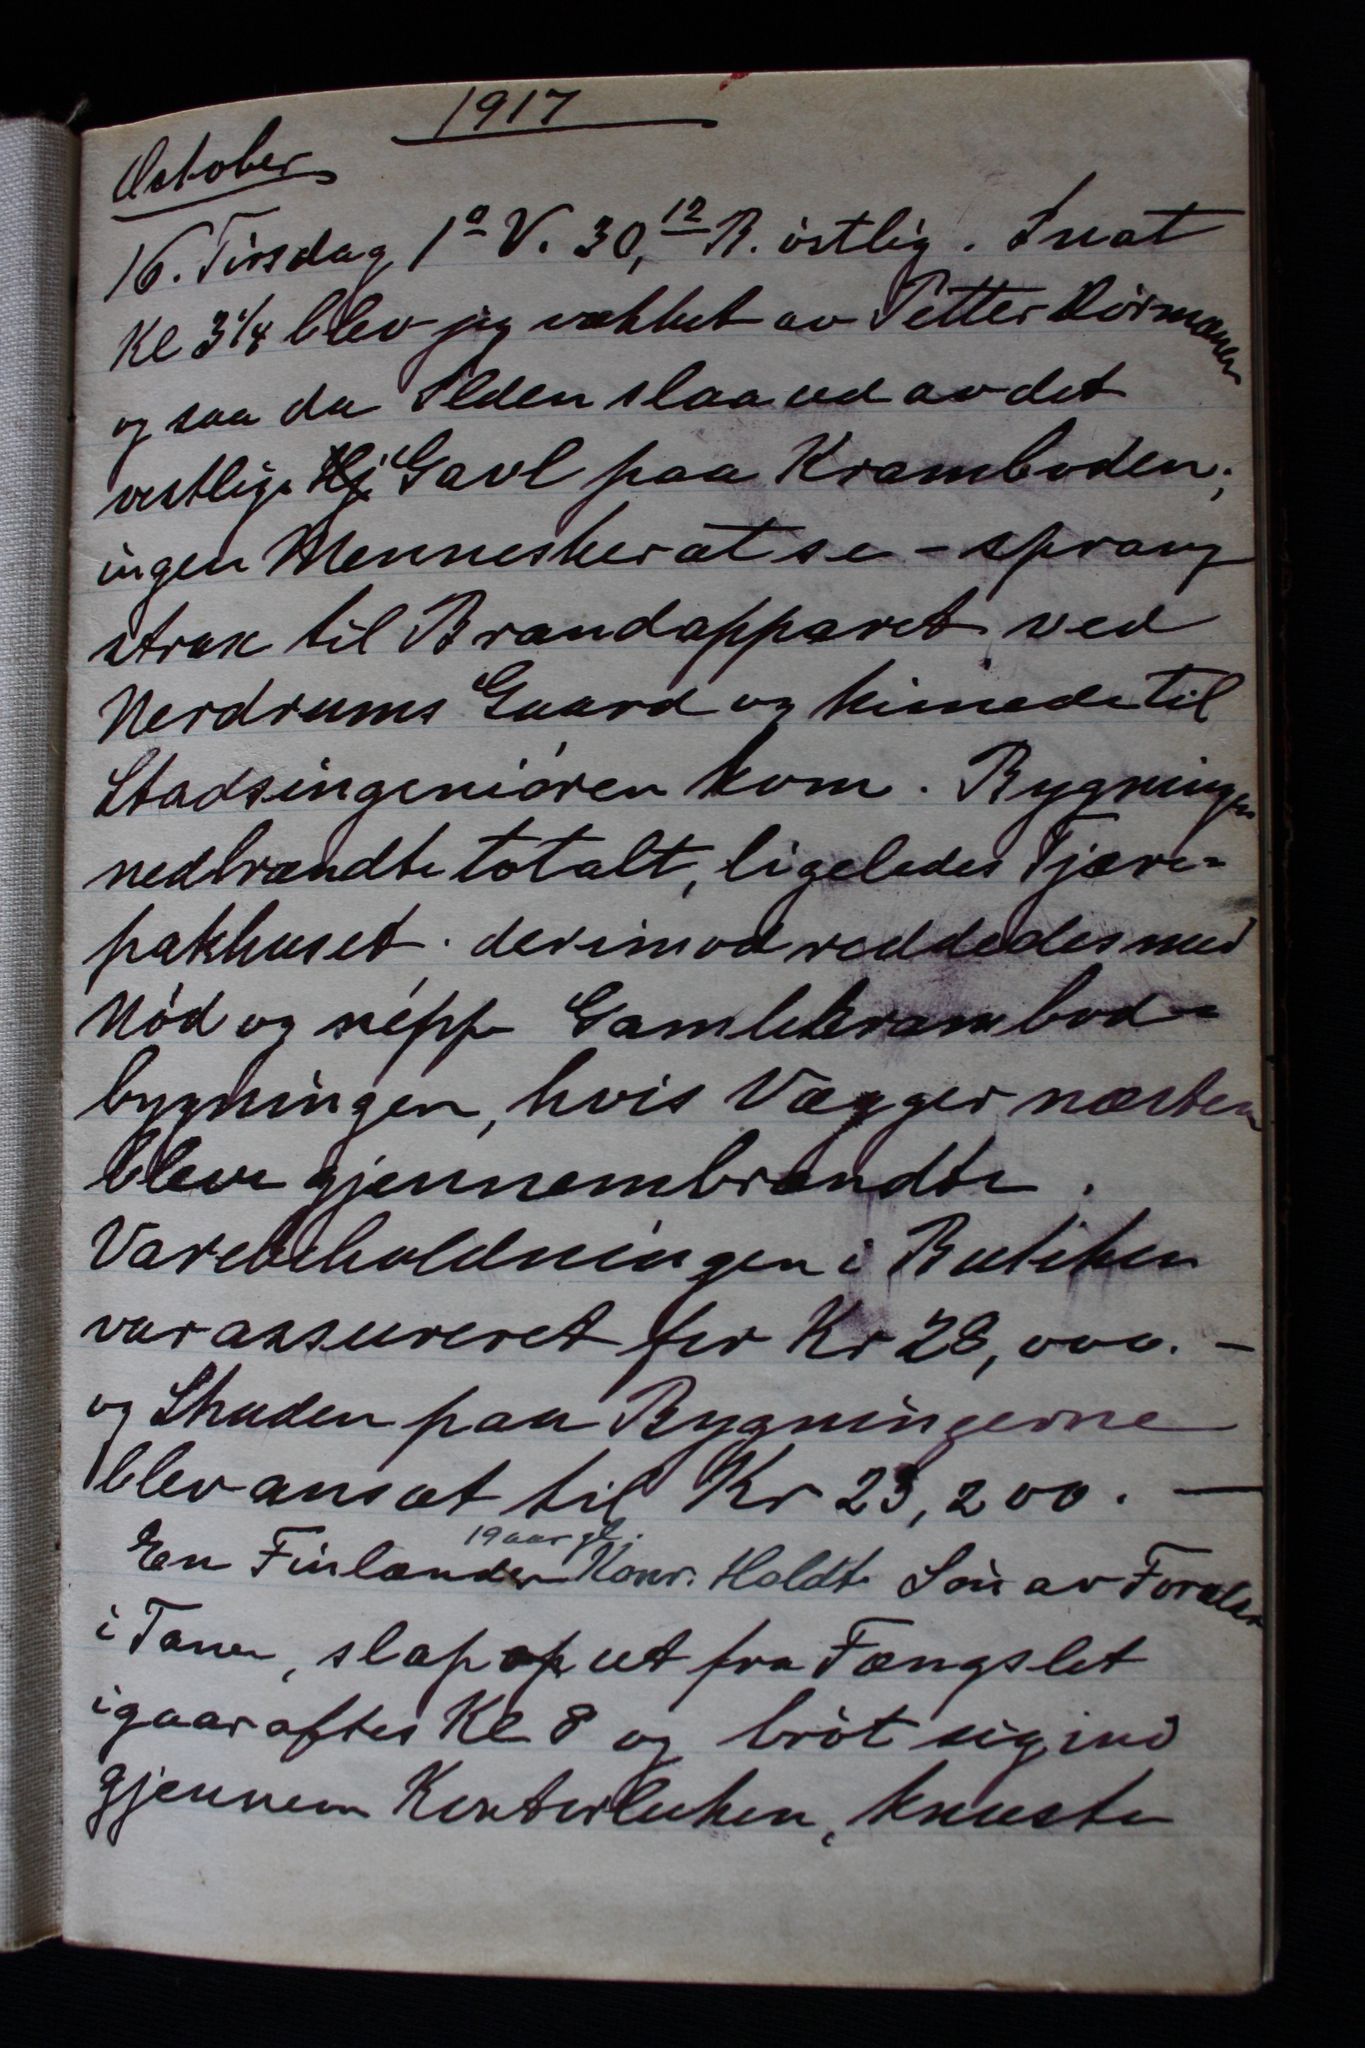 1917
October
16. Tirsdag 1° V. 30,12 B. östlig. Inat
Kl 3¼ blev jeg vækket av Petter Dörmænen
og saa da Ilden slaa ud av det
vestlige Kj Gavl paa Kramboden;
ingen Mennesker at se - sprang
strax til Brandapparet ved
Nerdrums Gaard og kimede til
Stadsingeniören kom. Bygningen
nedbrændte totalt, ligeledes Tjære-
pakhuset. derimod reddedes med
Nöd og néppe Gamlekrambod-
bygningen, hvis Vægger næsten
bleve gjennembrændte.
Varebeholdningen i Butiken
var assureret for Kr 28,000. -
og Skaden paa Bygningerne
blev ansat til Kr 23,200. -
En Finlænder 19 aar gl. Konr. Holdt. Sön av
i Tana, slap op ut fra Fængslet
igaaraftes Kl 8 og bröt sig ind
gjennem Kontorluken, knuste